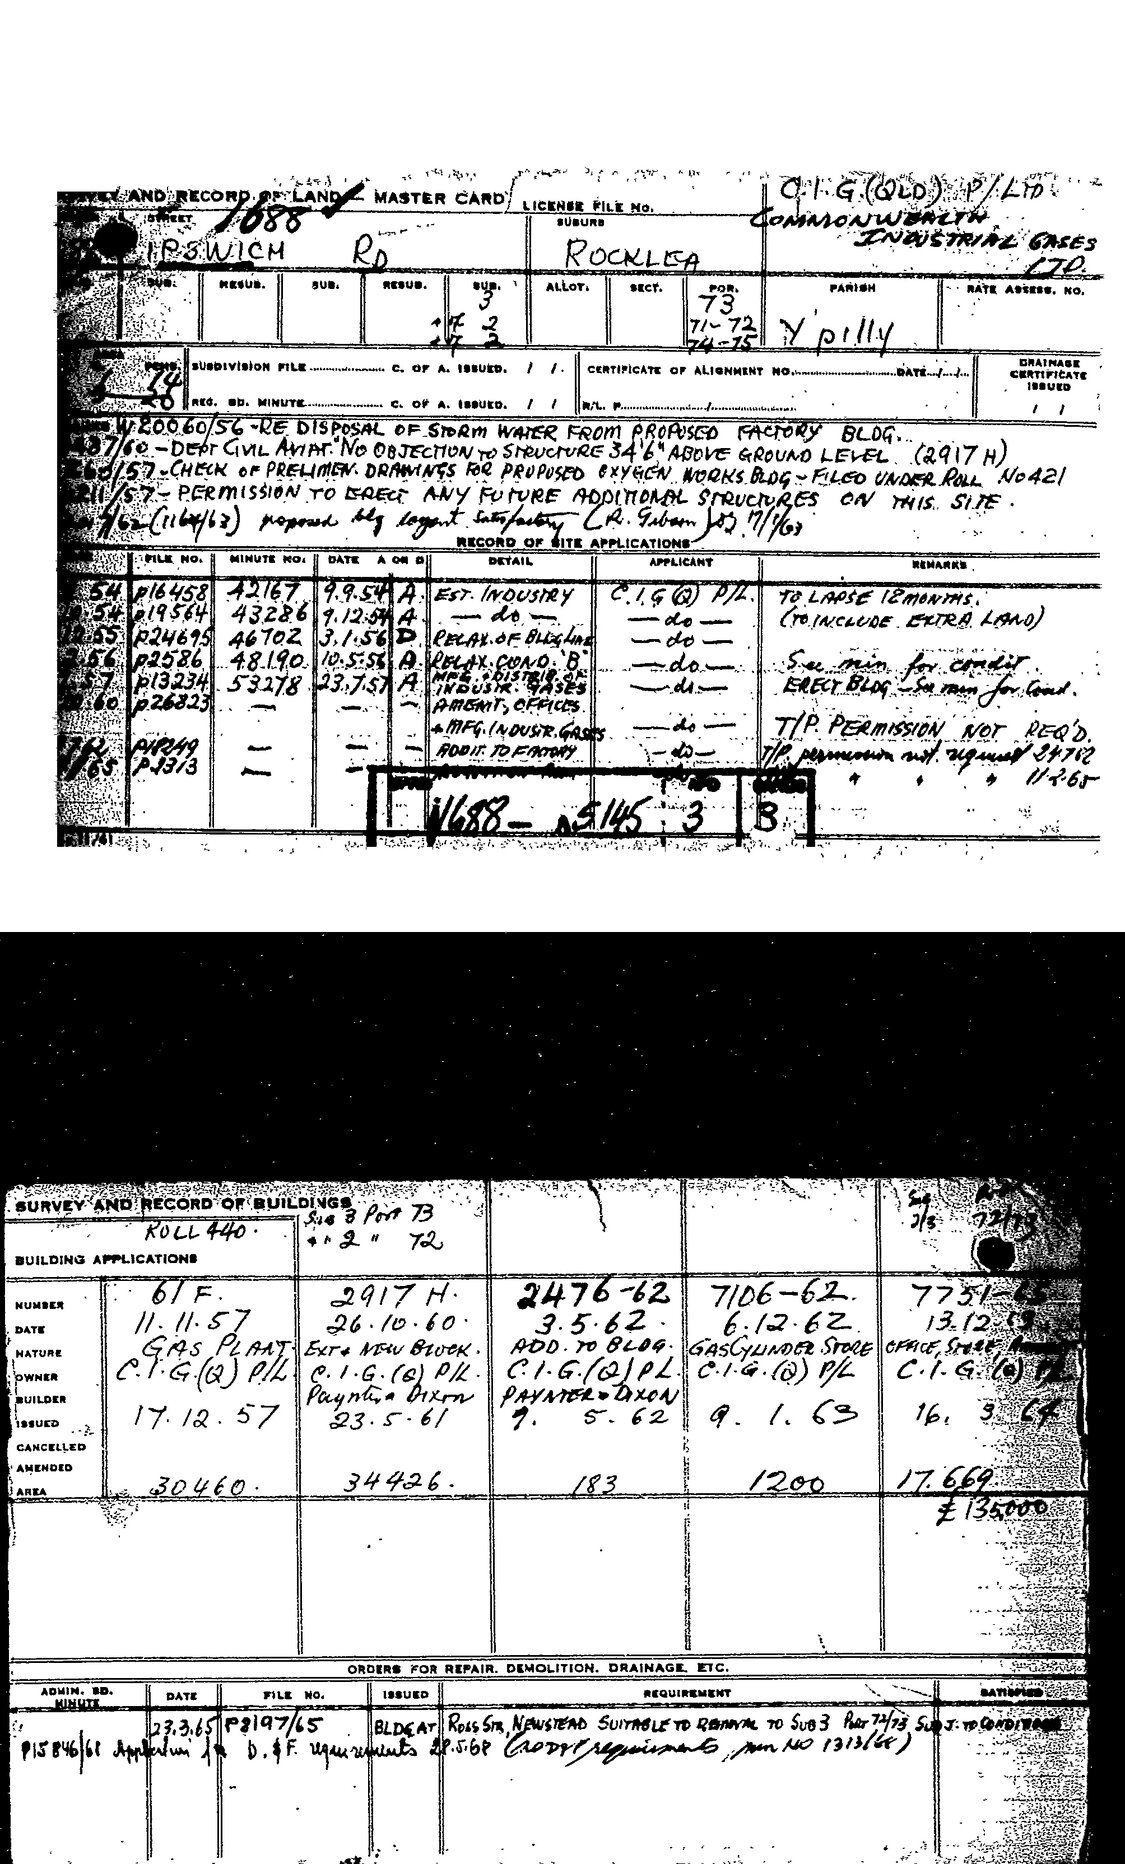 AND RECORD OF LAND — MASTER CARD LICENSE FILE No. C.I.G.(QLD) P/LTD
STREET 1688 SUBURB COMMONWEALTH
IPSWICH RD ROCKLEA INDUSTRIAL GASES
LTD.
SUB. RESUB. SUB. RESUB. SUB. ALLOT. SECT. POR. PARISH RATE ASSESS. NO.
3 73
2 71-72
2 74-75 Y'pilly
SUBDIVISION FILE C. OF A. ISSUED. / / CERTIFICATE OF ALIGNMENT NO. DATE / / DRAINAGE CERTIFICATE ISSUED
REG. BD. MINUTE C. OF A. ISSUED. / / R/L. P. / / /
W20060/56 - RE DISPOSAL OF STORM WATER FROM PROPOSED FACTORY BLDG.
/60 - DEPT CIVIL AVIAT. "NO OBJECTION TO STRUCTURE 34'6" ABOVE GROUND LEVEL (2917 H)
/57 - CHECK OF PRELIMEN. DRAWINGS FOR PROPOSED OXYGEN WORKS BLDG - FILED UNDER ROLL No 421
/57 - PERMISSION TO ERECT ANY FUTURE ADDITIONAL STRUCTURES ON THIS SITE.
/62 (1164/63) proposed bldg layout satisfactory (R. Gibson) 7/1/63
RECORD OF SITE APPLICATIONS
FILE NO. MINUTE NO. DATE A OR D DETAIL APPLICANT REMARKS
54 P16458 42167 9.9.54 A EST. INDUSTRY C.I.G(Q) P/L. TO LAPSE 12 MONTHS.
54 P19564 43286 9.12.54 A — do — — do — (TO INCLUDE EXTRA LAND)
55 P24695 46702 3.1.56 D RELAX. OF BLDG LINE — do —
56 P2586 48190 10.5.56 A RELAX. COND. 'B' — do — See min for condit.
57 P13234 53278 23.7.57 A MFG. & DISTRIB. OF INDUSTR. GASES — do — ERECT BLDG - See min for Cond.
60 P26823 — — AMENIT, OFFICES
+ MFG. INDUSTR. GASES — do — T/P. PERMISSION NOT REQ'D.
62 P18249 — — ADDIT. TO FACTORY — do — T/P. permission not required 24762
65 P2313 — — " " " 11.2.65
1688 — 5145 3 B
SURVEY AND RECORD OF BUILDINGS
ROLL 440. Sub 3 Port 73
" 2 " 72
2/3 72/73
BUILDING APPLICATIONS
NUMBER 61 F. 2917 H. 2476-62 7106-62.
DATE 11.11.57 26.10.60. 3.5.62. 6.12.62
NATURE GAS PLANT. EXT & NEW BLOCK. ADD. TO BLDG. GAS CYLINDER STORE OFFICE, STORE,
OWNER C.I.G.(Q) P/L C.I.G.(Q) P/L. C.I.G.(Q) P/L C.I.G.(Q) P/L C.I.G.(Q) P/L
BUILDER Paynter & Dixon PAYNTER & DIXON
ISSUED 17.12.57 23.5.61 9. 5.62 9. 1. 63 16. 3. 64
CANCELLED
AMENDED
AREA 30460. 34426. 183 1200 17.669
£135,000
ORDERS FOR REPAIR. DEMOLITION. DRAINAGE. ETC.
ADMIN. BD. MINUTE DATE FILE NO. ISSUED REQUIREMENT SATISFIED
23.3.65 P8197/65 BLDG AT ROSS STR, NEWSTEAD SUITABLE TO REMOVAL TO SUB 3 PORT 72/73 SUBJ. TO CONDITIONS
P15846/68 Application for D. & F. requirements 28.5.68 requirements, min NO 1313/68)